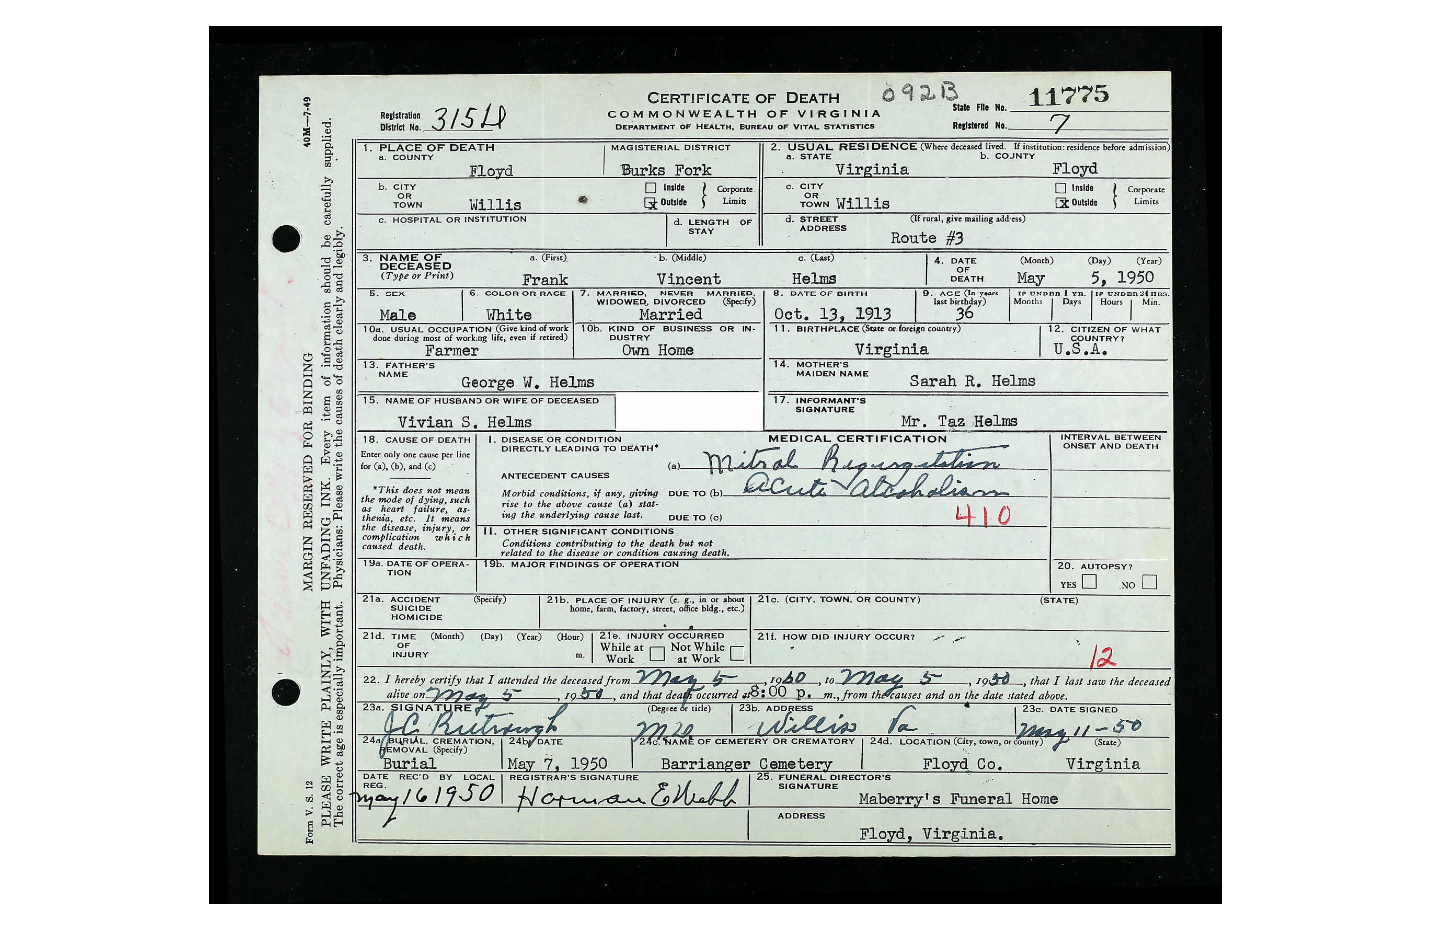 40M—7-49
Form V. S. 12
MARGIN RESERVED FOR BINDING
PLEASE WRITE PLAINLY, WITH UNFADING INK. Every item of information should be carefully supplied.
The correct age is especially important. Physicians: Please write the causes of death clearly and legibly.
CERTIFICATE OF DEATH
092B
11775
State File No.
Registration
District No. 315
COMMONWEALTH OF VIRGINIA
DEPARTMENT OF HEALTH, BUREAU OF VITAL STATISTICS
Registered No. 7
1. PLACE OF DEATH
a. COUNTY
Floyd
MAGISTERIAL DISTRICT
Burks Fork
2. USUAL RESIDENCE (Where deceased lived. If institution: residence before admission)
a. STATE
Virginia
b. COUNTY
Floyd
b. CITY
OR
TOWN Willis
Inside
x Outside
Corporate
Limits
c. CITY
OR
TOWN Willis
Inside
x Outside
Corporate
Limits
c. HOSPITAL OR INSTITUTION
d. LENGTH OF
STAY
d. STREET
ADDRESS
(If rural, give mailing address)
Route #3
3. NAME OF
DECEASED
(Type or Print)
a. (First)
Frank
b. (Middle)
Vincent
c. (Last)
Helms
4. DATE
OF
DEATH
(Month) (Day) (Year)
May 5, 1950
5. SEX
Male
6. COLOR OR RACE
White
7. MARRIED, NEVER MARRIED,
WIDOWED, DIVORCED (Specify)
Married
8. DATE OF BIRTH
Oct. 13, 1913
9. AGE (In years
last birthday)
36
IF UNDER 1 YR.
Months Days
IF UNDER 24 HRS.
Hours Min.
10a. USUAL OCCUPATION (Give kind of work
done during most of working life, even if retired)
Farmer
10b. KIND OF BUSINESS OR IN-
DUSTRY
Own Home
11. BIRTHPLACE (State or foreign country)
Virginia
12. CITIZEN OF WHAT
COUNTRY?
U.S.A.
13. FATHER'S
NAME
George W. Helms
14. MOTHER'S
MAIDEN NAME
Sarah R. Helms
15. NAME OF HUSBAND OR WIFE OF DECEASED
Vivian S. Helms
17. INFORMANT'S
SIGNATURE
Mr. Taz Helms
18. CAUSE OF DEATH
Enter only one cause per line
for (a), (b), and (c)
*This does not mean
the mode of dying, such
as heart failure, as-
thenia, etc. It means
the disease, injury, or
complication which
caused death.
MEDICAL CERTIFICATION
INTERVAL BETWEEN
ONSET AND DEATH
I. DISEASE OR CONDITION
DIRECTLY LEADING TO DEATH*
(a) Mitral Regurgitation
ANTECEDENT CAUSES
Morbid conditions, if any, giving
rise to the above cause (a) stat-
ing the underlying cause last.
DUE TO (b) Acute Alcoholism
DUE TO (c)
410
II. OTHER SIGNIFICANT CONDITIONS
Conditions contributing to the death but not
related to the disease or condition causing death.
19a. DATE OF OPERA-
TION
19b. MAJOR FINDINGS OF OPERATION
20. AUTOPSY?
YES NO
21a. ACCIDENT
SUICIDE
HOMICIDE
(Specify)
21b. PLACE OF INJURY (e. g., in or about
home, farm, factory, street, office bldg., etc.)
21c. (CITY, TOWN, OR COUNTY) (STATE)
21d. TIME
OF
INJURY
(Month) (Day) (Year) (Hour)
m.
21e. INJURY OCCURRED
While at
Work
Not While
at Work
21f. HOW DID INJURY OCCUR?
12
22. I hereby certify that I attended the deceased from May 5, 1950, to May 5, 1950, that I last saw the deceased
alive on May 5, 1950, and that death occurred at 8:00 p. m., from the causes and on the date stated above.
23a. SIGNATURE
(Degree or title)
MD
23b. ADDRESS
Willis Va
23c. DATE SIGNED
May 11-50
24a. BURIAL, CREMATION,
REMOVAL (Specify)
Burial
24b. DATE
May 7, 1950
24c. NAME OF CEMETERY OR CREMATORY
Barrianger Cemetery
24d. LOCATION (City, town, or county) (State)
Floyd Co. Virginia
DATE REC'D BY LOCAL
REG.
May 16 1950
REGISTRAR'S SIGNATURE
Harman E Webb
25. FUNERAL DIRECTOR'S
SIGNATURE
Maberry's Funeral Home
ADDRESS
Floyd, Virginia.